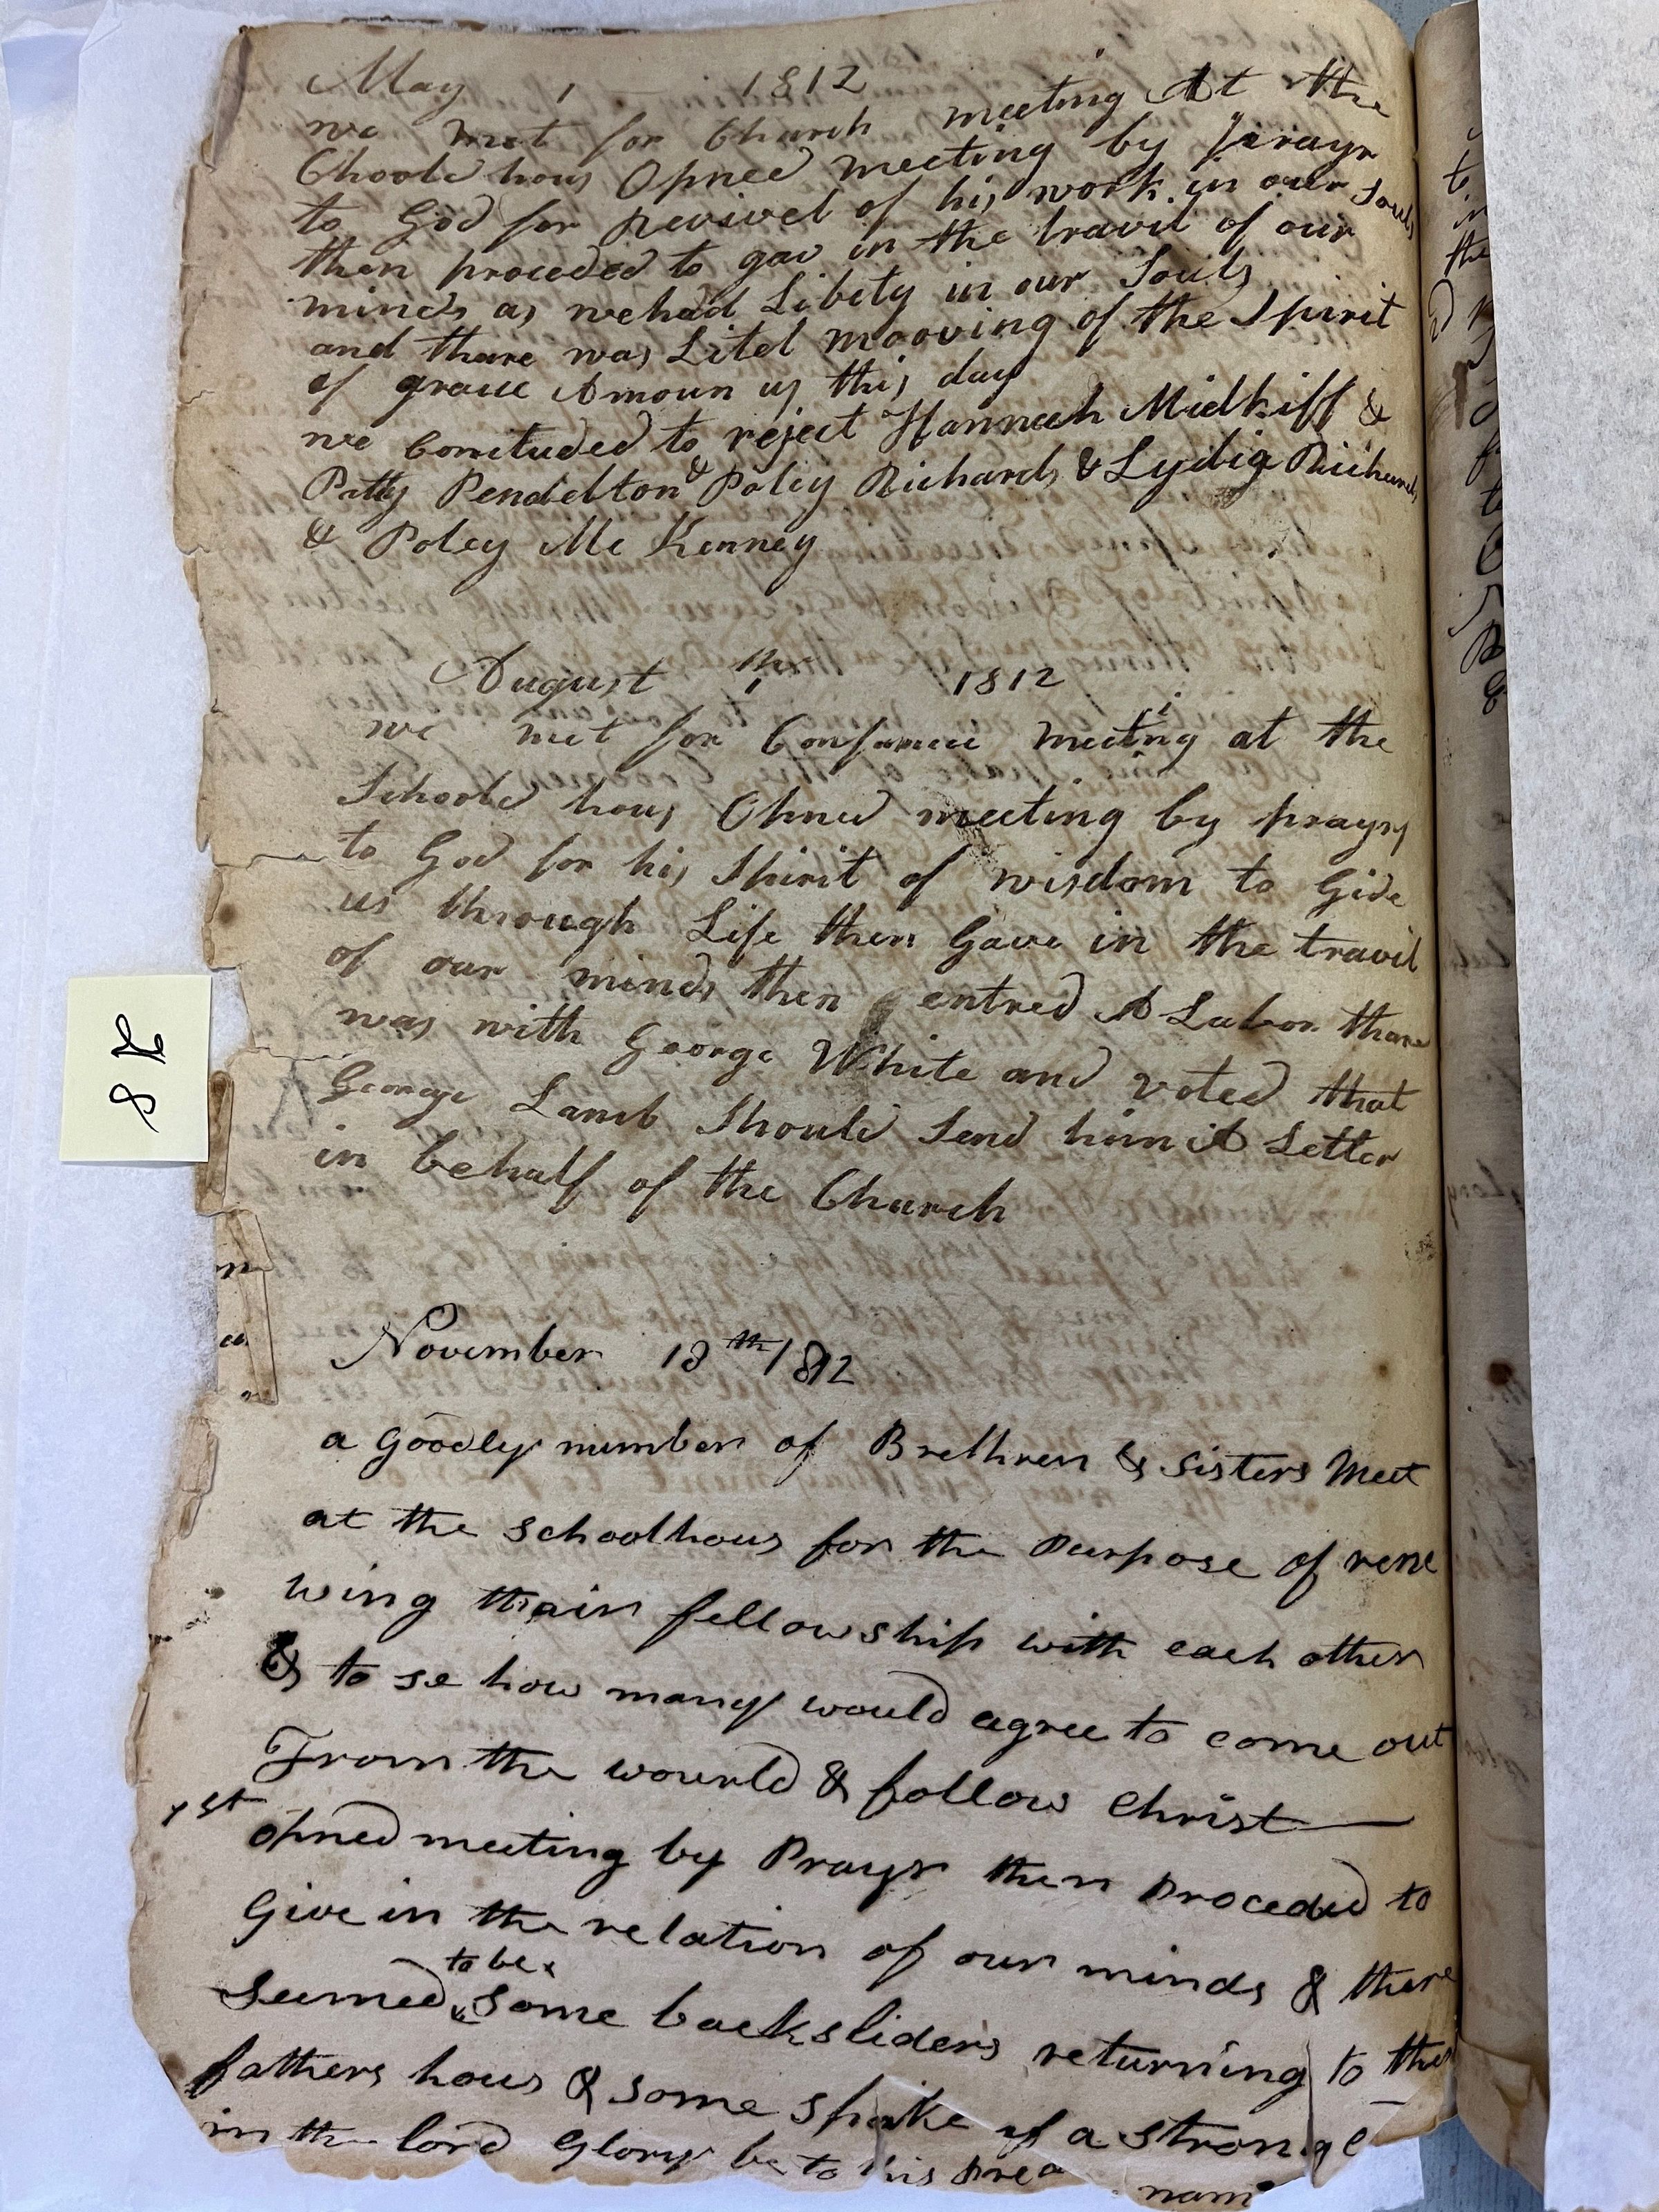 May 1 1812
we met for Church meeting At the
Choole hous Opned meeting by prayr
to God for revivel of his work in our Souls
then proceded to gav in the travil of our
minds as we had Libety in our Souls
and thare was Litel mooving of the Spirit
of grace Amoun us this day
we Concluded to reject Hannah Midkiff &
Patty Pendelton & Poley Richards & Lydia Richards
& Poley Mc Kenney
August 1 1812
we met for Confarnce meeting at the
Schoole hous Opned meeting by prayr
to God for his Spirit of wisdom to Gide
us through Life then Gave in the travil
of our minds then entred A Labor thare
was with George White and voted that
George Lamb Should Send him A Letter
in behalf of the Church
November 18th 1812
a Goodly number of Brethren & Sisters Meet
at the schoolhous for the Purpose of rene
wing thair fellowship with each other
& to se how many would agree to come out
From the wourld & follow Christ
1st opned meeting by Prayr then proceded to
Give in the relation of our minds & there
to be
Seemed some backsliders returning to the
fathers hous & some spake of a strong
in the lord Glory be to his nam
78